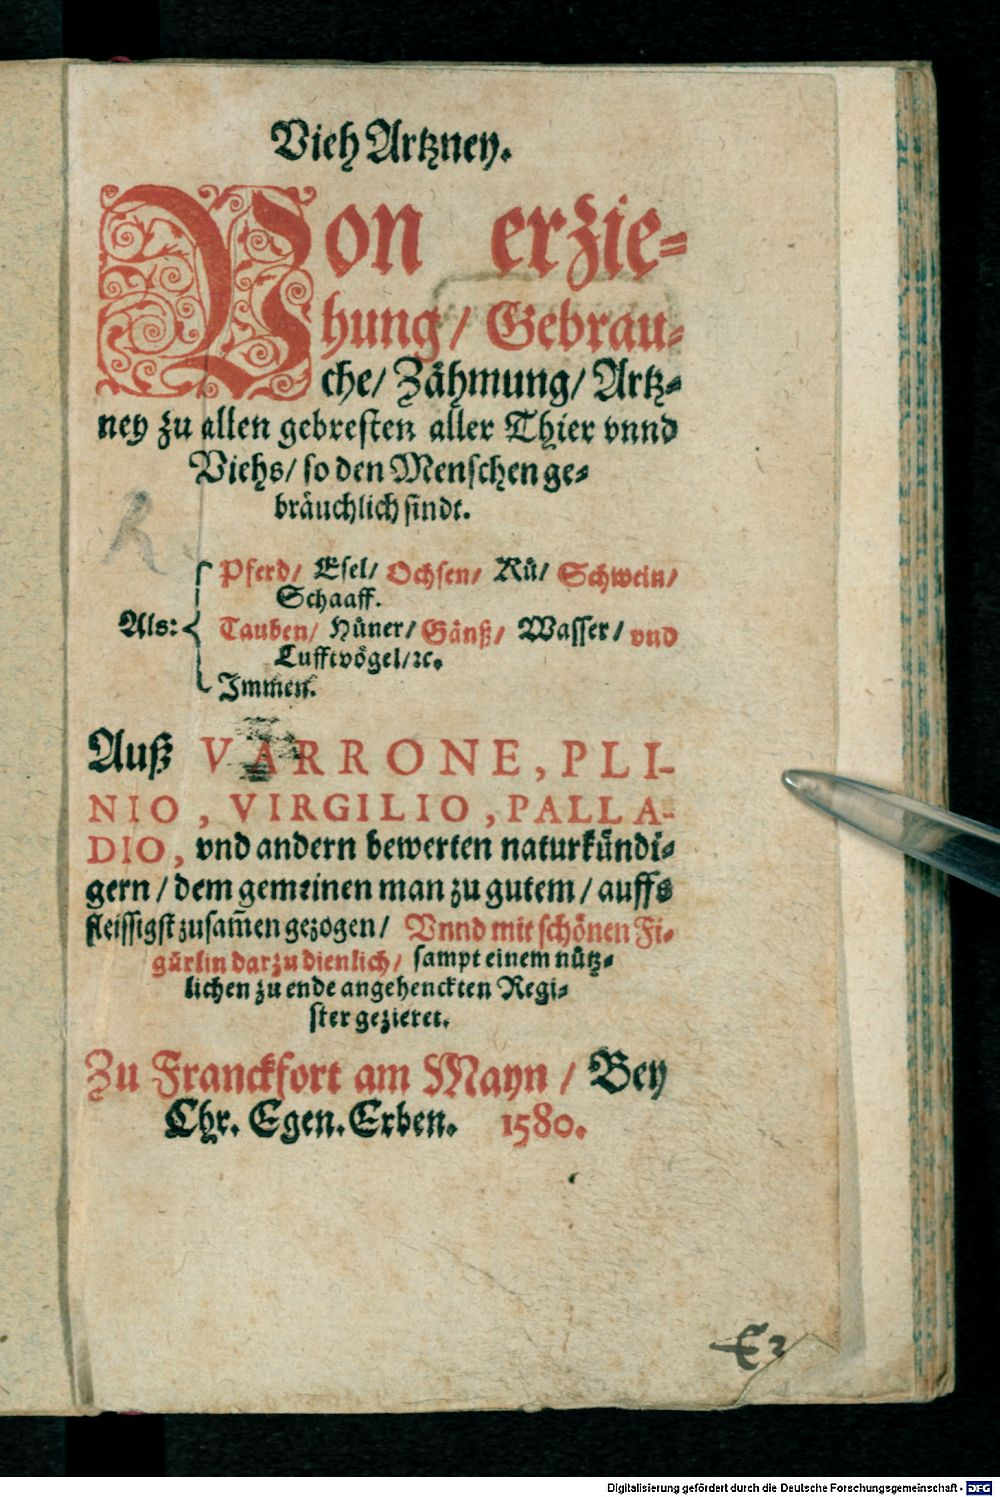 Vieh Artzney.
Von erzie-
hung/ Gebrau-
che/ Zåhmung/ Artz-
ney zu allen gebresten aller Thier vnnd
Viehs/ so den Menschen ge-
bräuchlich sindt.
Pferd/ Esel/ Ochsen/ Kü/ Schwein/
Schaaff.
Als:
Tauben/ Hüner/ Gänß/ Wasser/ vnd
Lufftvögel/ ꝛc.
Immen.
Auß VARRONE, PLI-
NIO, VIRGILIO, PALLA-
DIO, vnd andern bewerten naturkündi-
gern/ dem gemeinen man zu gutem/ auffs
fleissigst zusam̃en gezogen/ Vnnd mit schönen Fi-
gürlin darzu dienlich/ sampt einem nütz-
lichen zu ende angehenckten Regi-
ster gezieret.
Zu Franckfort am Mayn/ Bey
Chr. Egen. Erben. 1580.
Digitalisierung gefördert durch die Deutsche Forschungsgemeinschaft - DFG